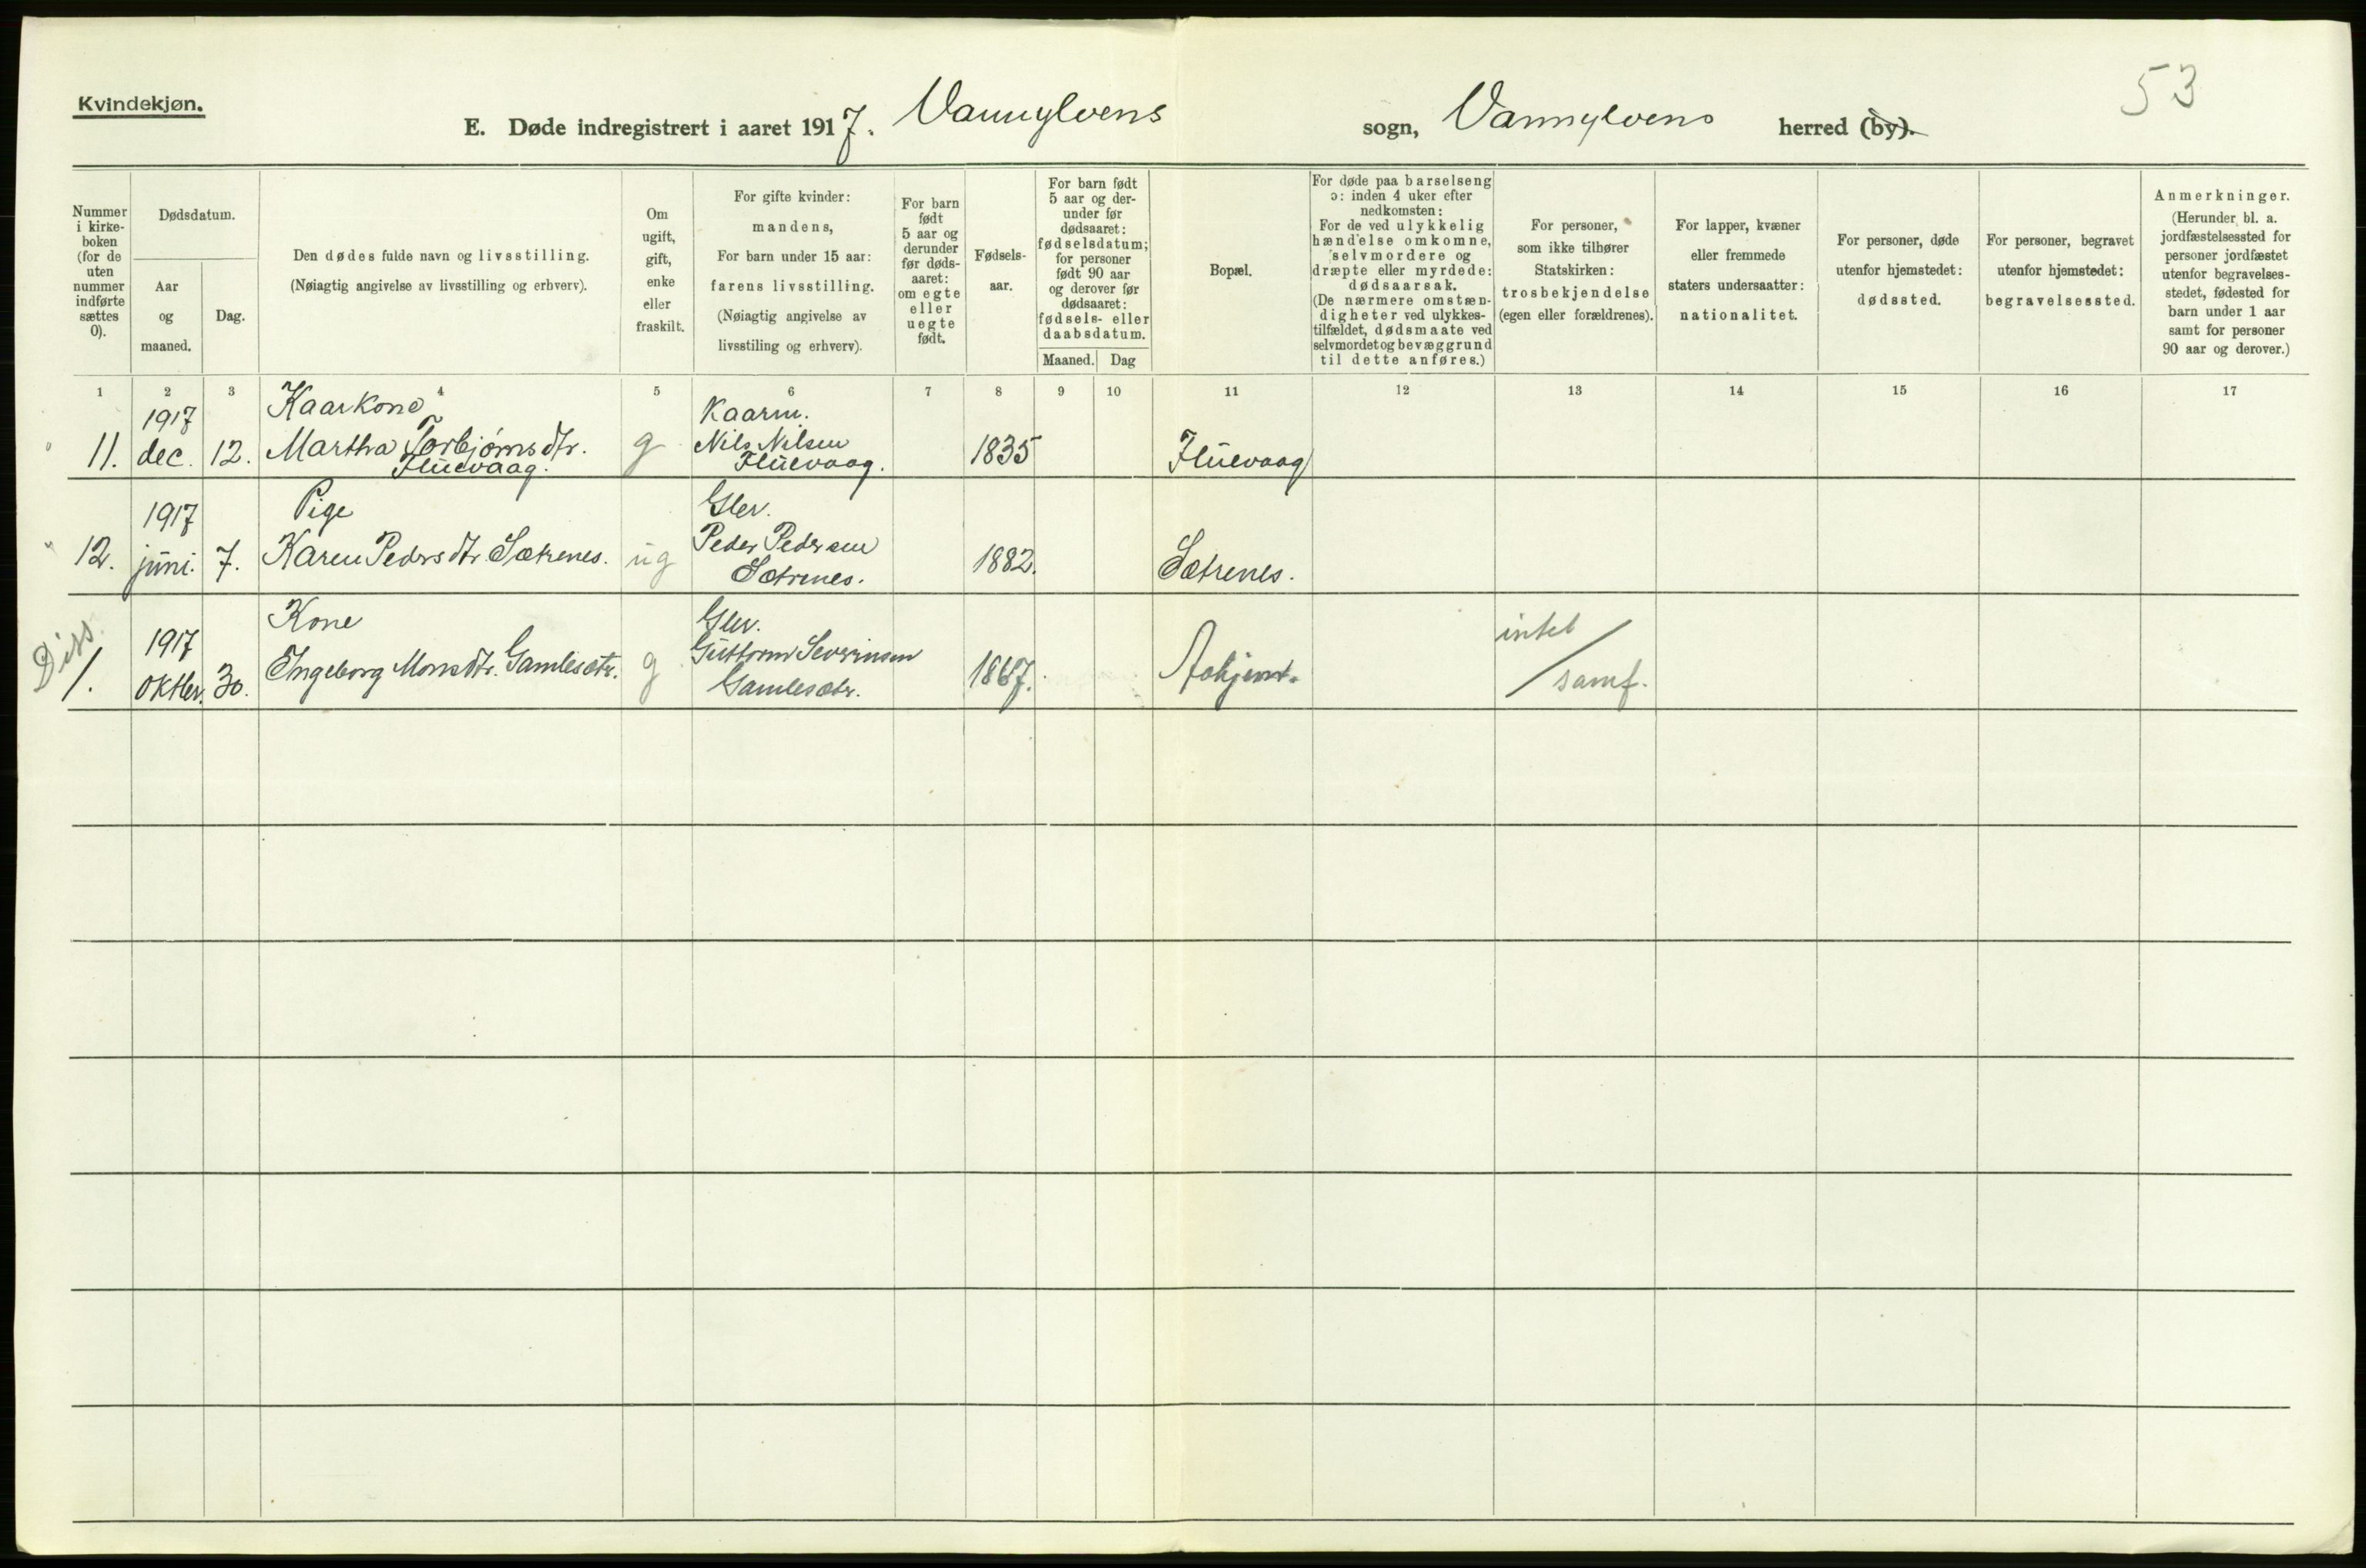 53
Kvindekjøn.
E. Døde indregistrert i aaret 1917. Vannylvens sogn, Vannylvens herred (by).
Nummer
i kirke-
boken
(for de
uten
nummer
indførte
sættes
0).
Dødsdatum.
Aar
og
maaned.
Dag.
Den dødes fulde navn og livsstilling.
(Nøiagtig angivelse av livsstilling og erhverv).
Om
ugift,
gift,
enke
eller
fraskilt.
For gifte kvinder:
mandens,
For barn under 15 aar:
farens livsstilling.
(Nøiagtig angivelse av
livsstiling og erhverv).
For barn
født
5 aar og
derunder
før døds-
aaret:
om egte
eller
uegte
født.
Fødsels-
aar.
For barn født
5 aar og der-
under før
dødsaaret:
fødselsdatum;
for personer
født 90 aar
og derover før
dødsaaret:
fødsels- eller
daabsdatum.
Maaned. Dag
Bopæl.
For døde paa barselseng
ɔ: inden 4 uker efter
nedkomsten:
For de ved ulykkelig
hændelse omkomne,
selvmordere og
dræpte eller myrdede:
dødsaarsak.
(De nærmere omstæn-
digheter ved ulykkes-
tilfældet, dødsmaate ved
selvmordet og bevæggrund
til dette anføres.)
For personer,
som ikke tilhører
Statskirken:
trosbekjendelse
(egen eller forældrenes).
For lapper, kvæner
eller fremmede
staters undersaatter:
nationalitet.
For personer, døde
utenfor hjemstedet:
dødssted.
For personer, begravet
utenfor hjemstedet:
begravelsessted.
Anmerkninger.
(Herunder bl. a.
jordfæstelsessted for
personer jordfæstet
utenfor begravelses-
stedet, fødested for
barn under 1 aar
samt for personer
90 aar og derover.)
1 2 3 4 5 6 7 8 9 10 11 12 13 14 15 16 17
1917 Kaarkone Kaarm.
11. dec. 12. Martha Torbjørnsdtr. g Nils Nilsen 1835 Flüevaag
Flüevaag. Flüevaag.
1917 Pige Glev.
12. jüni. 7. Karen Pedersdtr. Sætrenes. üg Peder Pedersen 1882. Sætrenes.
Sætrenes.
Diss. 1917 Kone Glev. intel
1. oktber. 30. Ingeborg Monsdtr. Gamlesætr. g Güttorm Severinsen 1867. samf.
Gamlesætr.